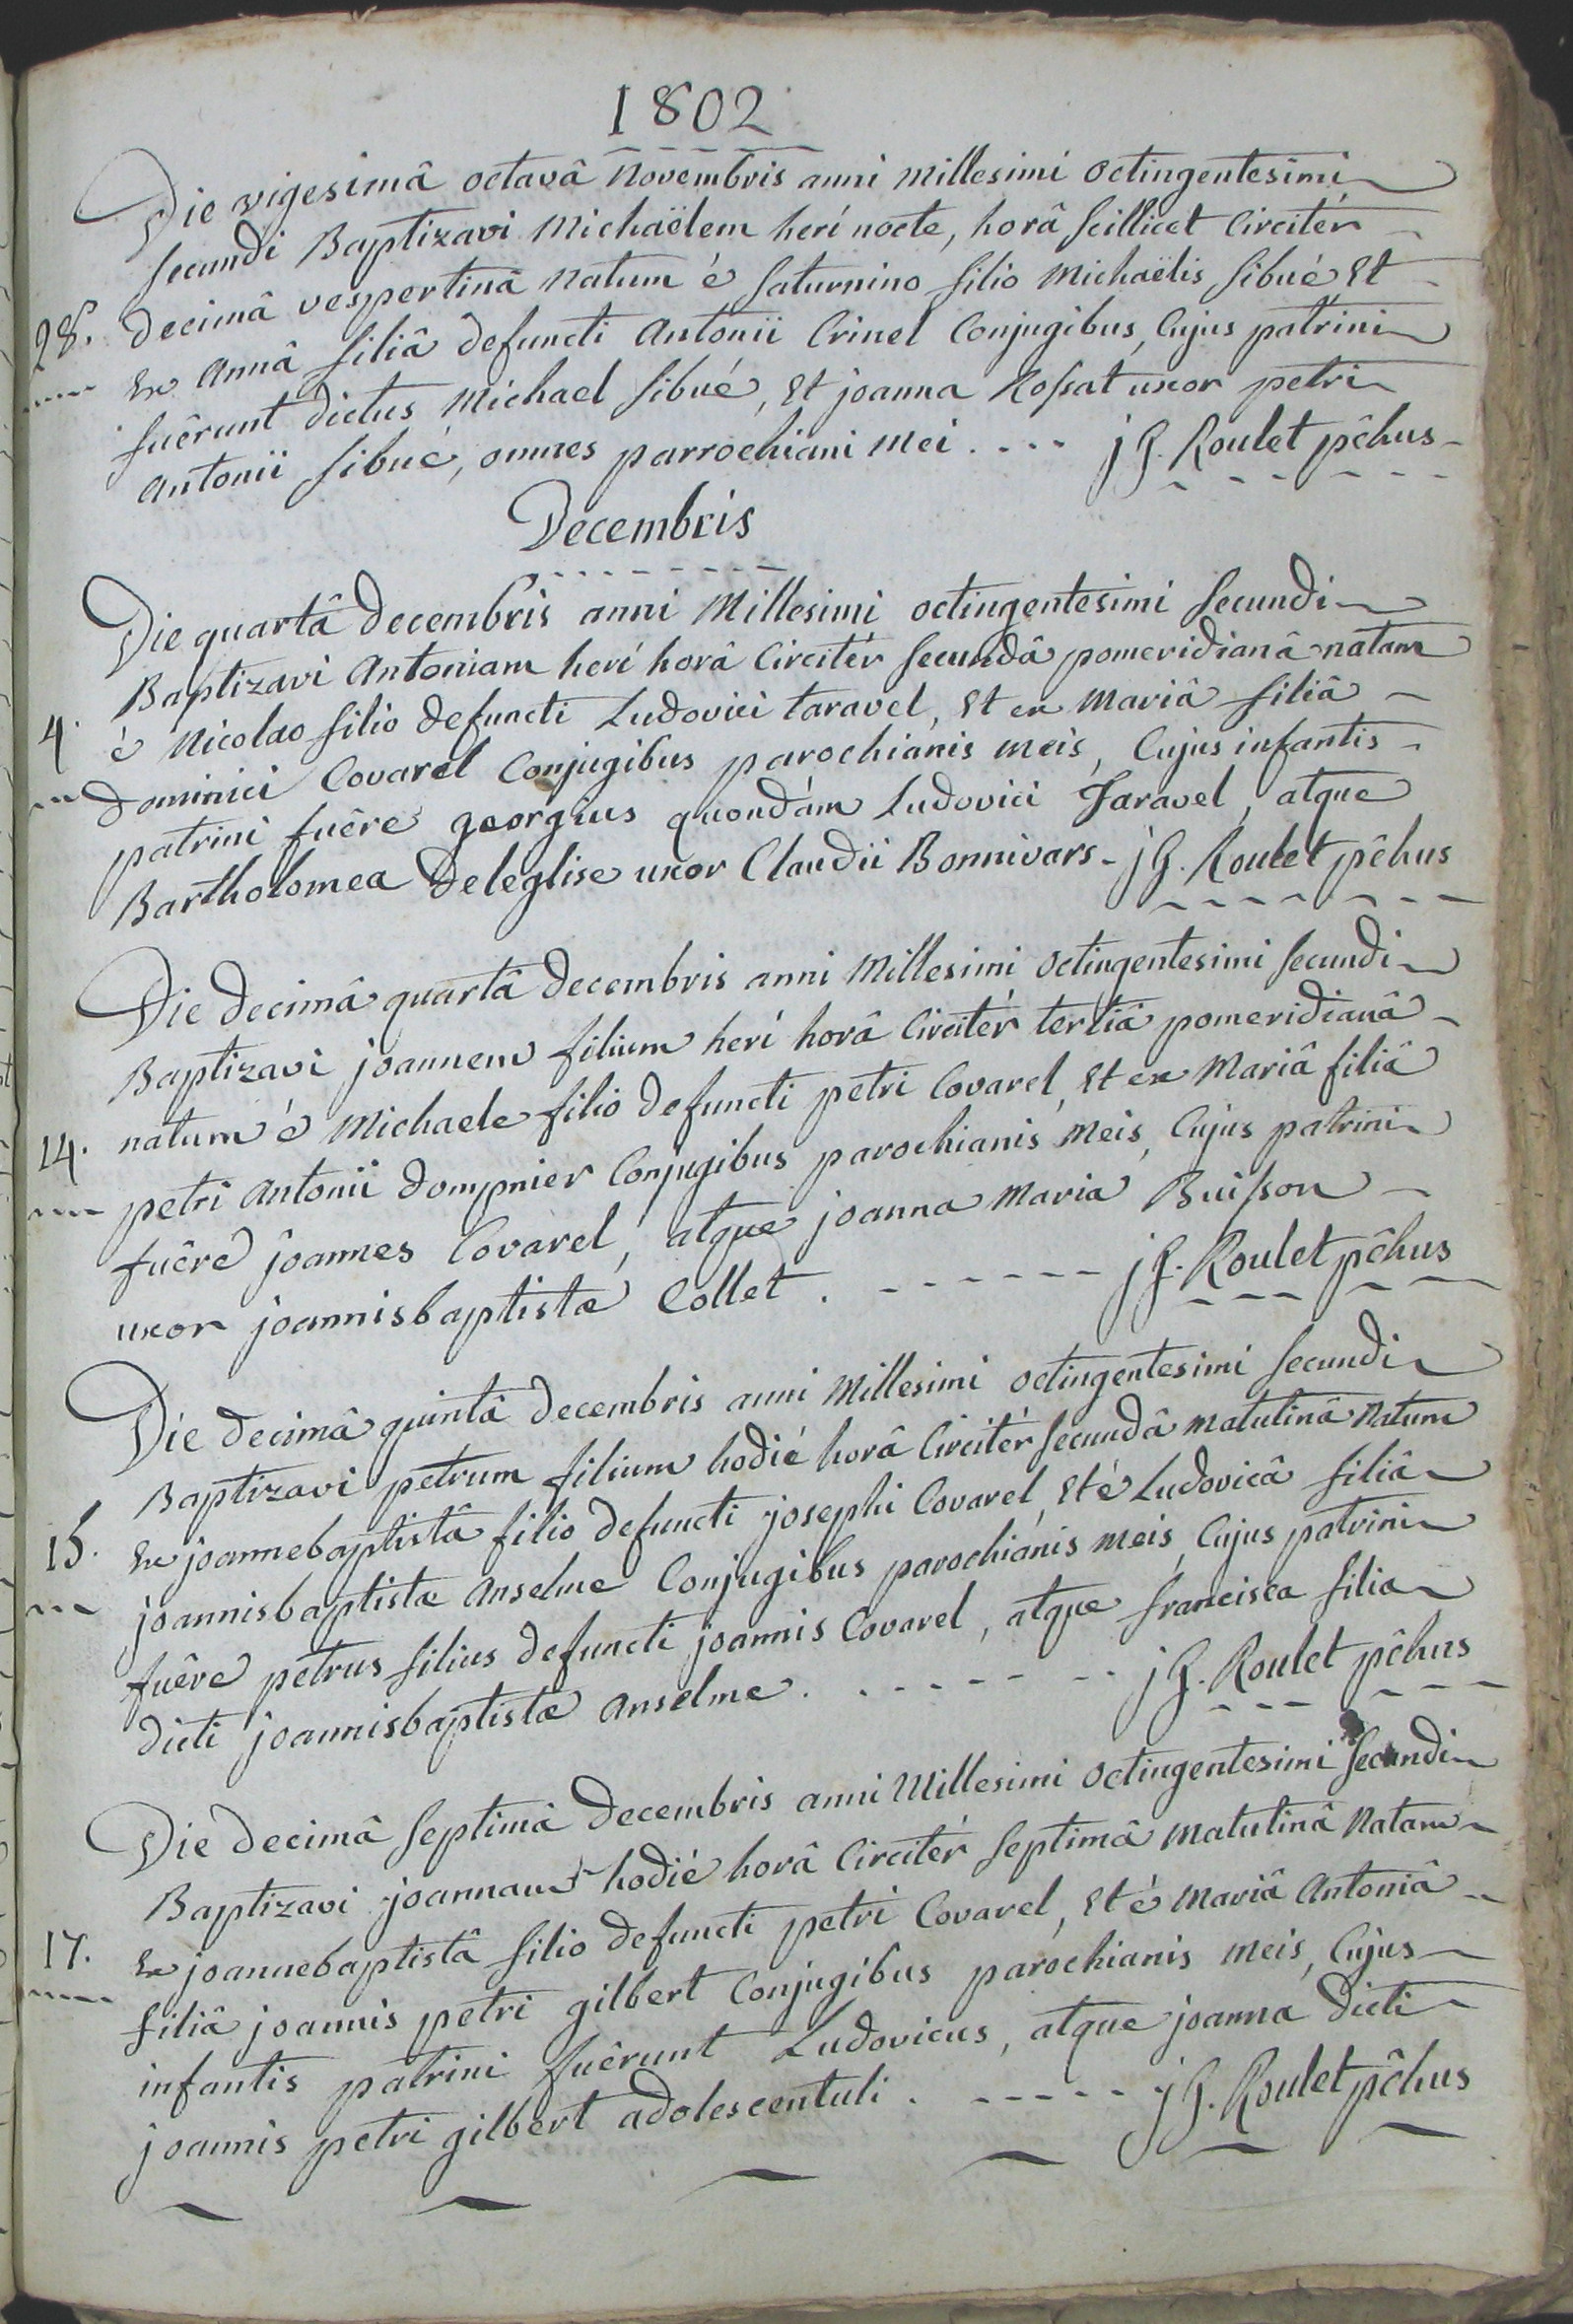 1802
Die vigesimâ octavâ Novembris anni Millesimi octingentesimi
secundi Baptizavi Michaëlem herí nocte, horâ scillicet Circitér
28. decimâ vespertinâ natum é Saturnino filio Michaëlis Sibué Et
Ex Annâ filiâ defuncti Antonii Crinel Conjugibus, Cujus patrini
fuêrunt dictus Michael Sibué, Et joanna Rossat uxor petri
Antonii Sibué, omnes parrochiani Mei .... j G. Roulet pêhus
Decembris
Die quartâ decembris anni Millesimi octingentesimi Secundi
Baptizavi Antoniam herí horâ Circitér secundâ pomeridianâ natam
4. é Nicolao filio defuncti Ludovici taravel, Et ex Mariâ filiâ
dominici Covarel Conjugibus parochianis meis, Cujus infantis
patrini fuêre georgius quondám Ludovici Taravel, atque
Bartholomea Deleglise uxor Claudii Bonnivars - j G. Roulet pêhus
Die decimâ quartâ decembris anni Millesimi octingentesimi secundi
Baptizavi joannem filium herí horâ Circitér tertiâ pomeridianâ
14. natum é Michaele filio defuncti petri Covarel, Et ex Mariâ filiâ
petri Antonii dompnier Conjugibus parochianis Meis, Cujus patrini
fuêre joannes Covarel, atque joanna Maria Buisson
uxor joannisbaptistæ Collet . ------ j G. Roulet pêhus
Die decimâ quintâ decembris anni Millesimi octingentesimi secundi
Baptizavi petrum filium hodié horâ Circitér secundâ matutinâ natum
15. Ex joannebaptistâ filio defuncti josephi Covarel, Et é Ludovicâ filiâ
joannisbaptistæ Anselme Conjugibus parochianis meis, Cujus patrini
fuêre petrus filius defuncti joannis Covarel, atque francisca filia
dicti joannisbaptistæ Anselme . ------ j G. Roulet pêhus
Die decimâ septimâ decembris anni Millesimi octingentesimi secundi
Baptizavi joannam hodié horâ Circitér septimâ matutinâ natam
17. Ex joannebaptistâ filio defuncti petri Covarel, Et é Mariâ Antoniâ
filiâ joannis petri gilbert Conjugibus parochianis meis, Cujus
infantis patrini fuêrunt Ludovicus, atque joanna dicti
joannis petri gilbert adolescentuli . ----- j G. Roulet pêhus